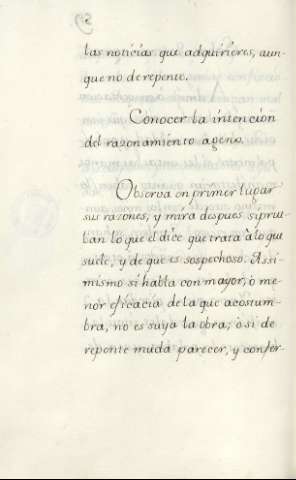 las noticias que adquirieres, aun-
que no de repente.
Conocer la intención
del razonamiento ageno.
Observa en primer lugar
sus razones, y mira despues si prue-
ban lo que él dice que trata à lo que
suele, y de que es sospechoso. Assi-
mismo si habla con mayor, ò me-
nor eficacia de la que acostum-
bra, no es suya la obra; ò si de
repente muda parecer, y confer-